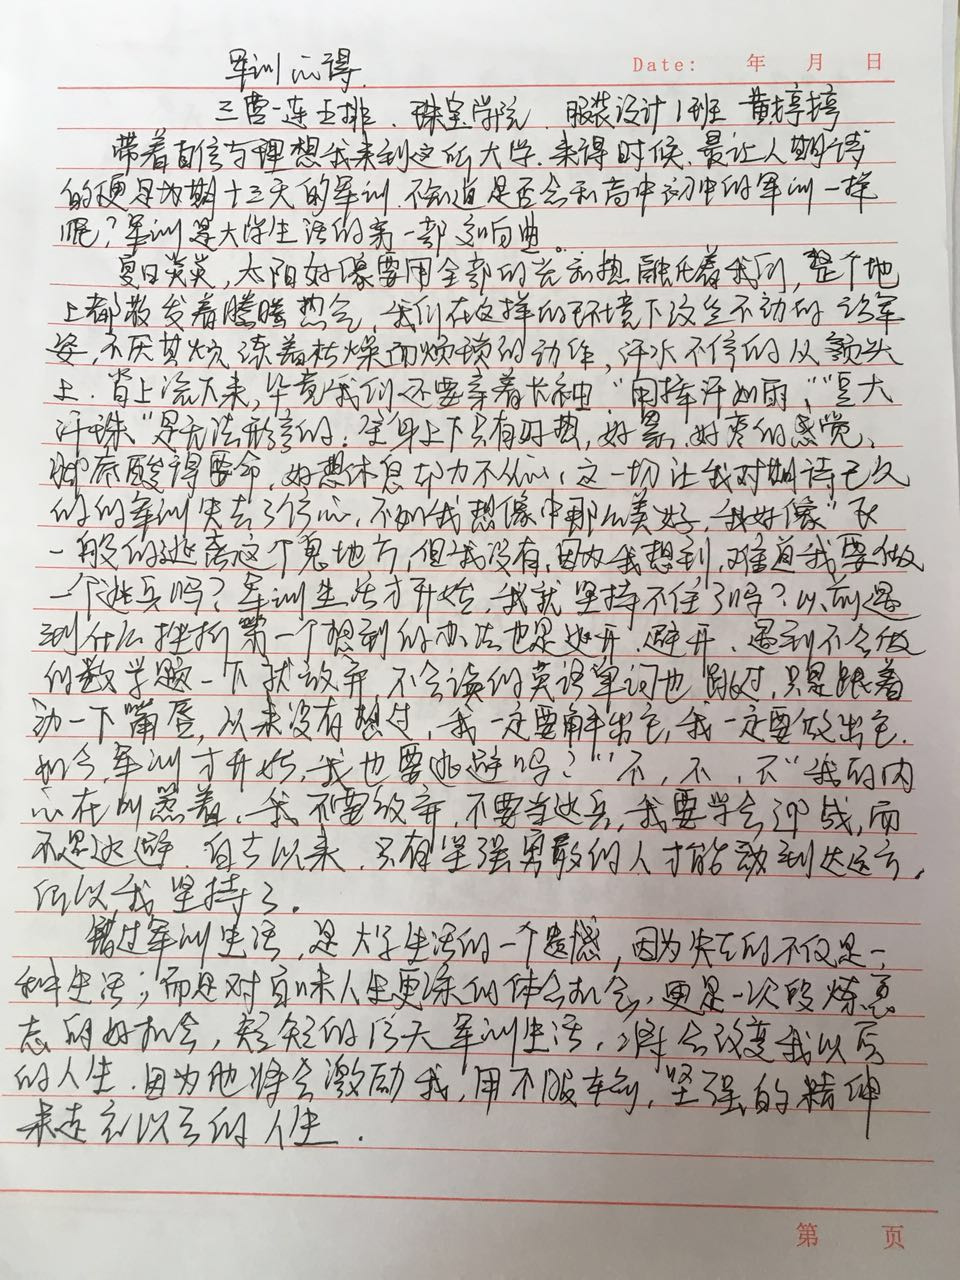 军训心得
Date: 年 月 日
三营一连五排、珠宝学院、服装设计1班 黄婷婷
带着自信与理想我来到这所大学.来得时候,最让人期待
的便是为期十三天的军训.不知道是否会和高中初中的军训一样
呢?军训是大学生活的第一部交响曲。
夏日炎炎,太阳好像要用全部的光和热融化着我们,整个地
上都散发着腾腾热气,我们在这样的环境下纹丝不动的站军
姿,不厌其烦,练着枯燥而烦琐的动作,汗水不停的从额头
上.背上流下来,毕竟我们还要穿着长袖."用挥汗如雨","豆大
汗珠"是无法形容的.全身上下只有好热,好累,好疼的感觉,
脚底酸得要命,好想休息却力不从心,这一切让我对期待已久
的的军训失去了信心,不如我想像中那么美好,我好像"飞
一般的逃离这个鬼地方,但我没有,因为我想到,难道我要做
一个逃兵吗?军训生活才开始,我就坚持不住了吗?以前遇
到什么挫折第一个想到的办法也是逃开.避开.遇到不会做
的数学题一下就放弃,不会读的英语单词也跳过,只是跟着
动一下嘴唇,从来没有想过,我一定要解出它,我一定要做出它.
如今,军训才开始,我也要逃避吗?""不,不,不"我的内
心在叫嚣着,我不要放弃,不要当逃兵,我要学会迎战,而
不是逃避.自古以来,只有坚强勇敢的人才能到达远方,
所以我坚持了.
错过军训生活,是大学生活的一个遗憾,因为失去的不仅是一
种生活;而是对百味人生更深的体会机会,更是一次锻炼意
志的好机会,短短的13天军训生活,将会改变我以后
的人生.因为他将会激励我,用不服输,坚强的精神
来走之以后的人生.
第 页